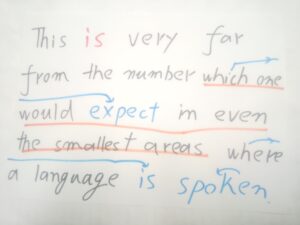 This is very far
from the number which one
would expect in even
the smallest areas where
a language is spoken.